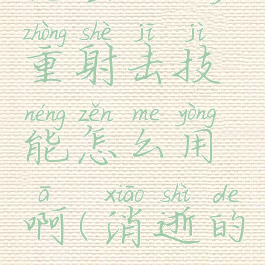 zhòng shè jī jì
重射击技
néng zěn me yòng
能怎么用
ā xiāo shì de
啊(消逝的